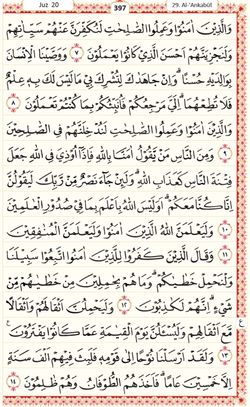 Juz 20 397 29. Al-'Ankabūt
وَالَّذِيْنَ اٰمَنُوْا وَعَمِلُوا الصّٰلِحٰتِ لَنُكَفِّرَنَّ عَنْهُمْ سَيِّاٰتِهِمْ
وَلَنَجْزِيَنَّهُمْ اَحْسَنَ الَّذِيْ كَانُوْا يَعْمَلُوْنَ ٧ وَوَصَّيْنَا الْاِنْسَانَ
بِوَالِدَيْهِ حُسْنًا ۗوَاِنْ جَاهَدٰكَ لِتُشْرِكَ بِيْ مَا لَيْسَ لَكَ بِهٖ عِلْمٌ
فَلَا تُطِعْهُمَا ۗاِلَيَّ مَرْجِعُكُمْ فَاُنَبِّئُكُمْ بِمَا كُنْتُمْ تَعْمَلُوْنَ ٨
وَالَّذِيْنَ اٰمَنُوْا وَعَمِلُوا الصّٰلِحٰتِ لَنُدْخِلَنَّهُمْ فِى الصّٰلِحِيْنَ
٩ وَمِنَ النَّاسِ مَنْ يَّقُوْلُ اٰمَنَّا بِاللّٰهِ فَاِذَآ اُوْذِيَ فِى اللّٰهِ جَعَلَ
فِتْنَةَ النَّاسِ كَعَذَابِ اللّٰهِ ۗوَلَىِٕنْ جَاۤءَ نَصْرٌ مِّنْ رَّبِّكَ لَيَقُوْلُنَّ
اِنَّا كُنَّا مَعَكُمْ ۗاَوَلَيْسَ اللّٰهُ بِاَعْلَمَ بِمَا فِيْ صُدُوْرِ الْعٰلَمِيْنَ
١٠ وَلَيَعْلَمَنَّ اللّٰهُ الَّذِيْنَ اٰمَنُوْا وَلَيَعْلَمَنَّ الْمُنٰفِقِيْنَ
١١ وَقَالَ الَّذِيْنَ كَفَرُوْا لِلَّذِيْنَ اٰمَنُوا اتَّبِعُوْا سَبِيْلَنَا
وَلْنَحْمِلْ خَطٰيٰكُمْ ۗوَمَا هُمْ بِحٰمِلِيْنَ مِنْ خَطٰيٰهُمْ مِّنْ
شَيْءٍ ۗاِنَّهُمْ لَكٰذِبُوْنَ ١٢ وَلَيَحْمِلُنَّ اَثْقَالَهُمْ وَاَثْقَالًا
مَّعَ اَثْقَالِهِمْ ۖوَلَيُسْـَٔلُنَّ يَوْمَ الْقِيٰمَةِ عَمَّا كَانُوْا يَفْتَرُوْنَ ع
١٣ وَلَقَدْ اَرْسَلْنَا نُوْحًا اِلٰى قَوْمِهٖ فَلَبِثَ فِيْهِمْ اَلْفَ سَنَةٍ
اِلَّا خَمْسِيْنَ عَامًا ۗفَاَخَذَهُمُ الطُّوْفَانُ وَهُمْ ظٰلِمُوْنَ ١٤